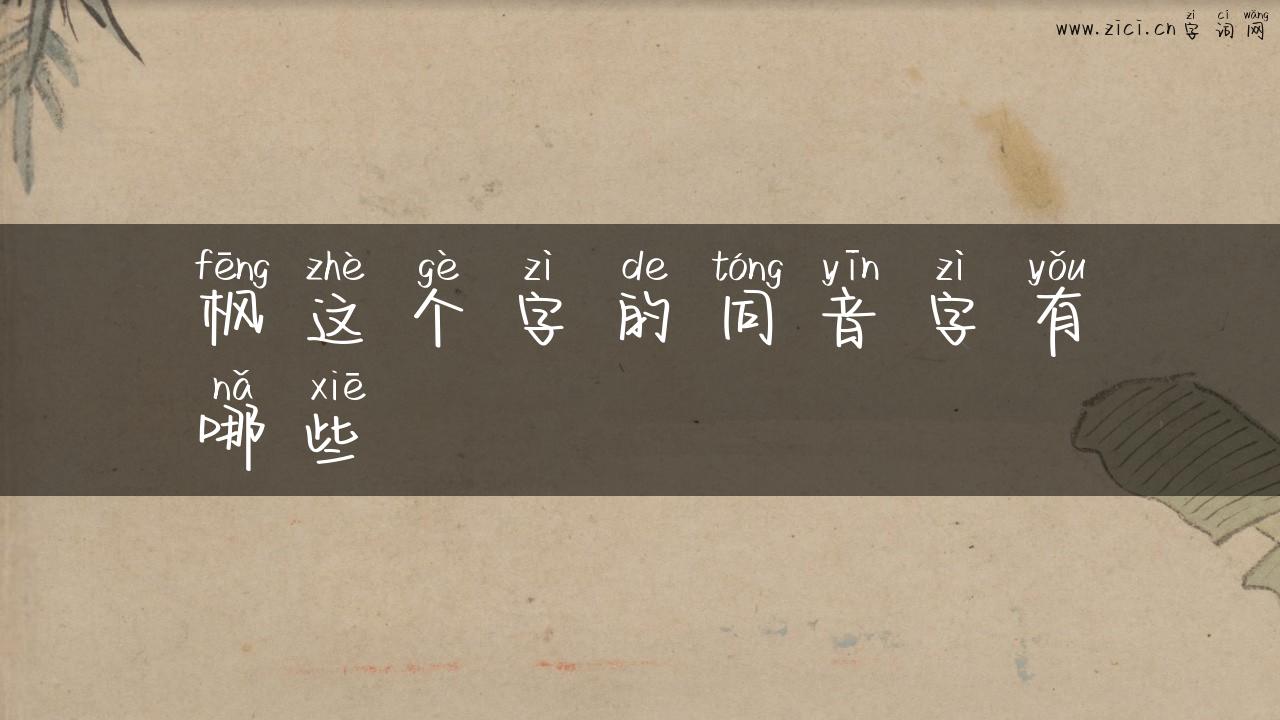 zì cí wǎng
www.zici.cn 字词网
fēng zhè gè zì de tóng yīn zì yǒu
枫这个字的同音字有
nǎ xiē
哪些